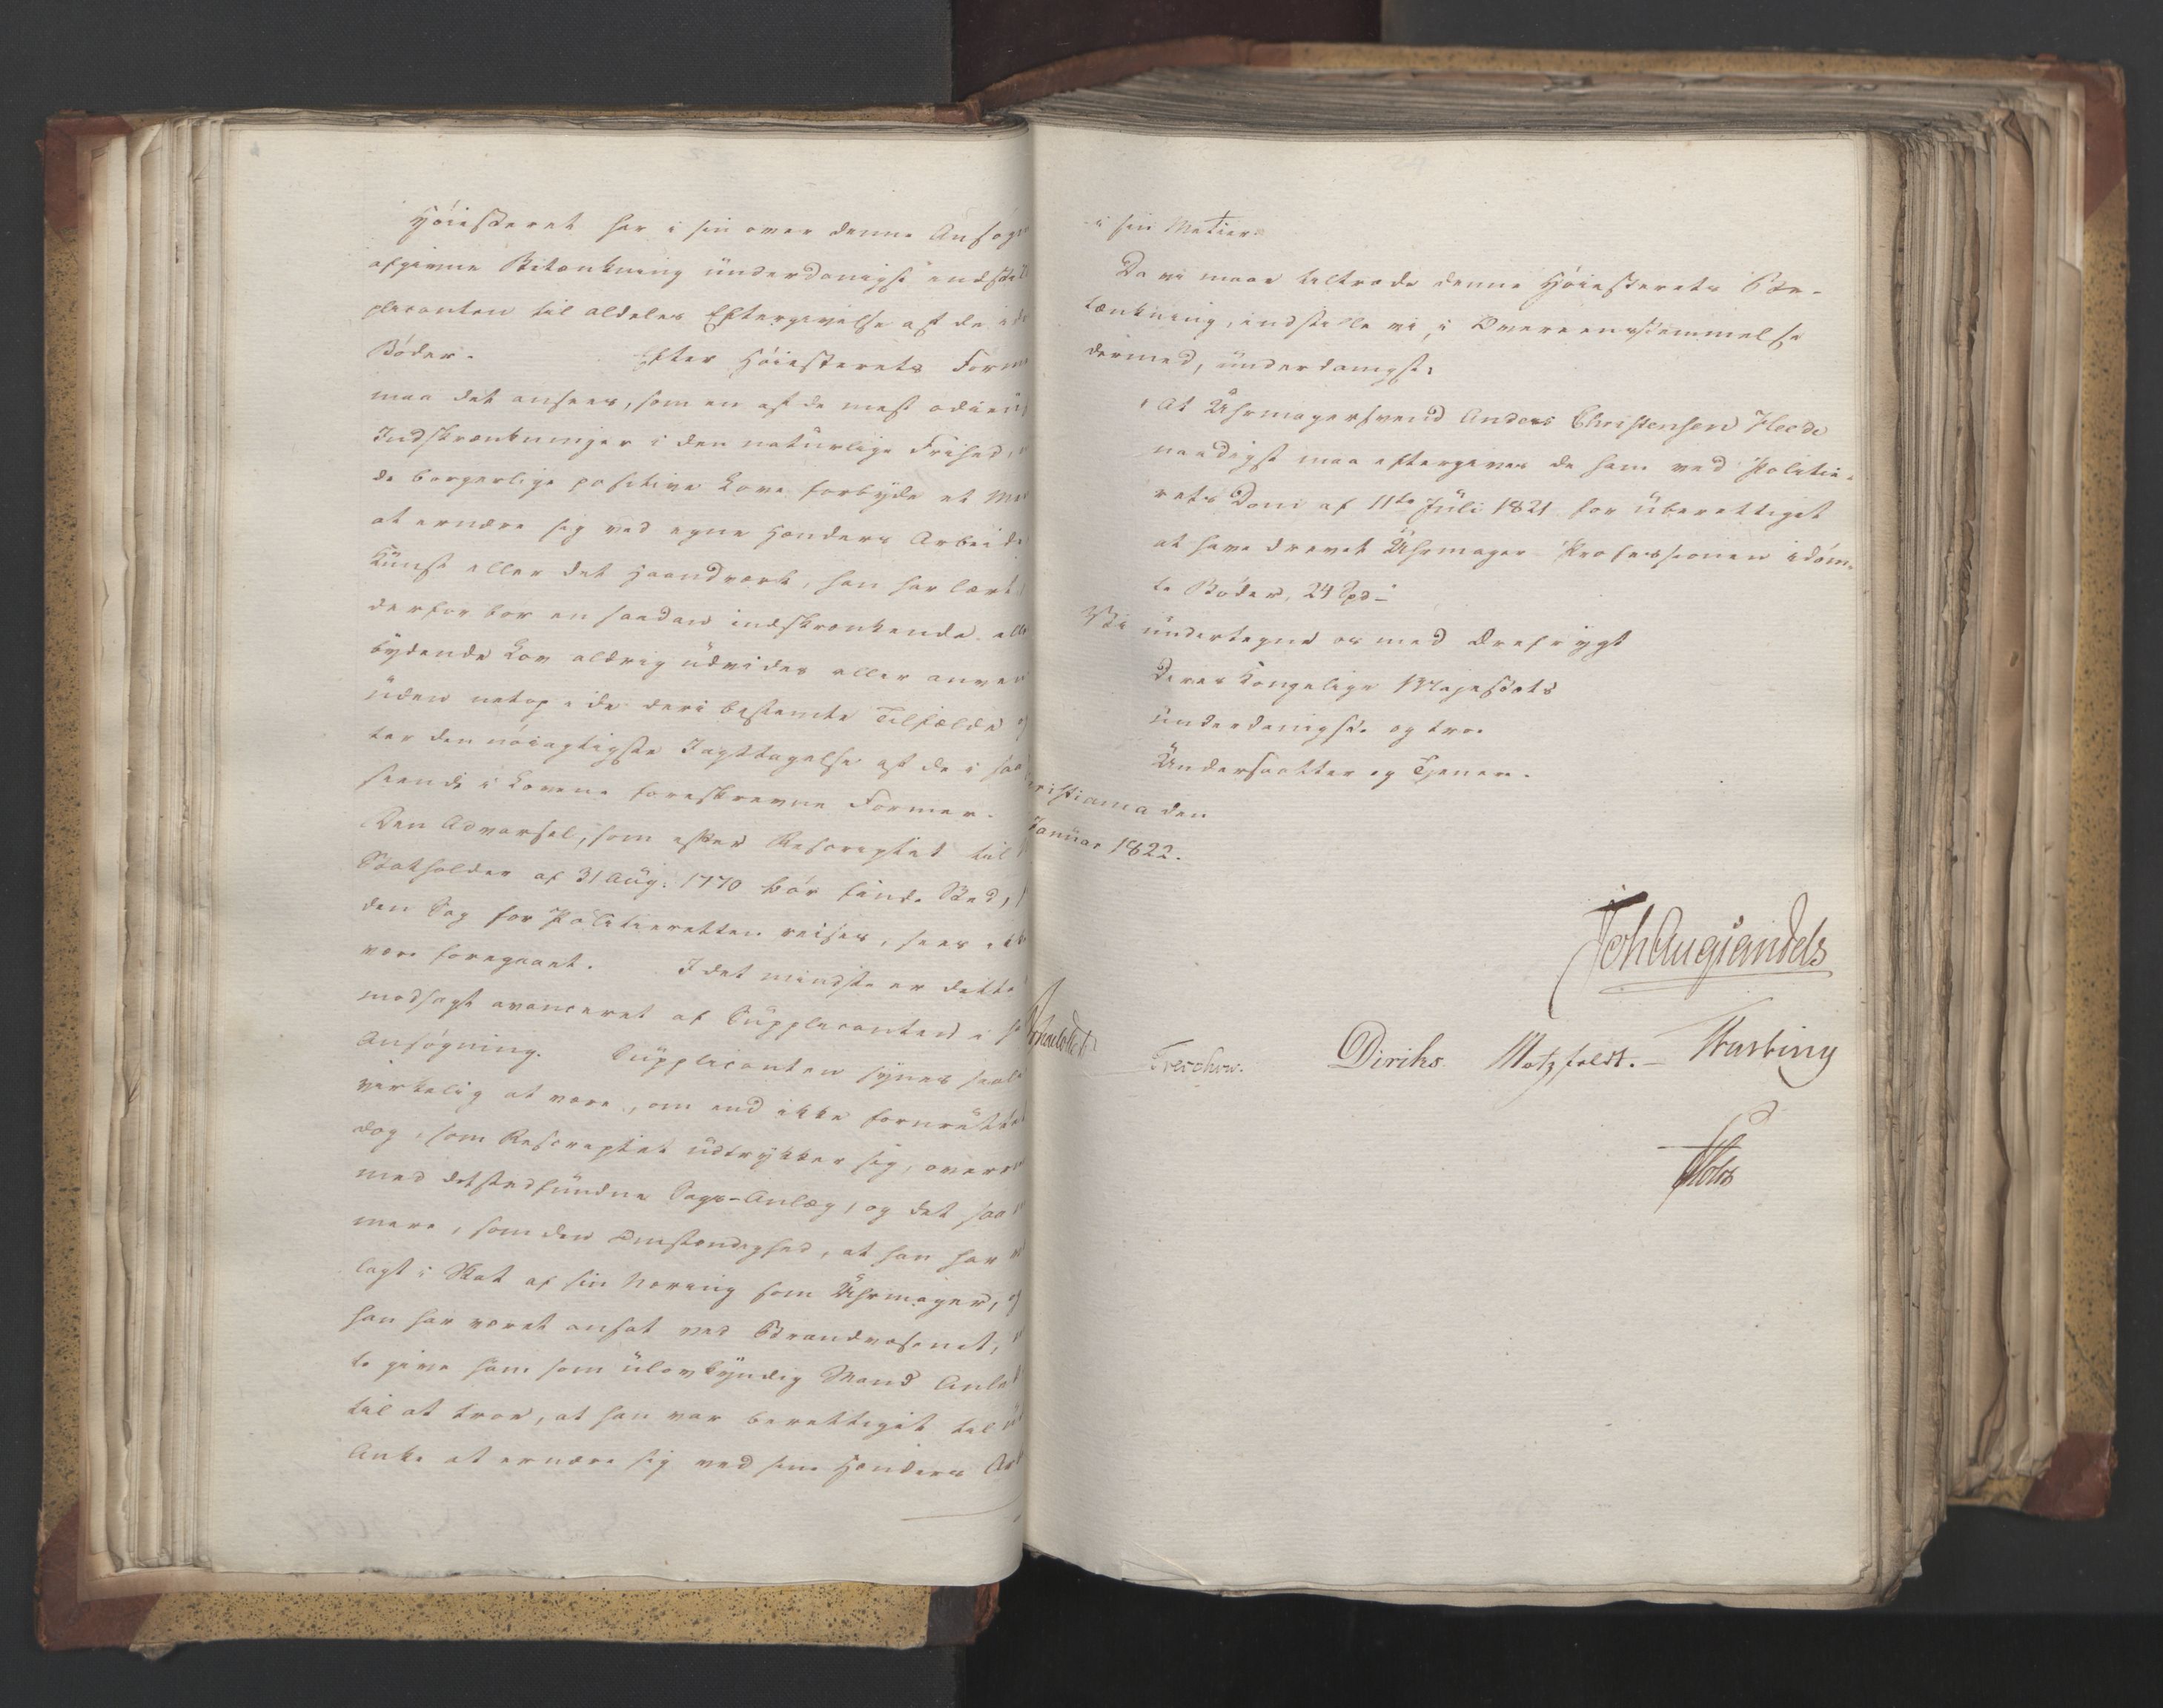 Høiesteret har i sin over denne Ansøgn
afgivne Betænkning underdanigst indstil
plicanten til aldeles Eftergivelse af de id
Bøder. Efter Høiesterets Form
maa det ansees, som en af de mest odieus
Indskrænkninger i den naturlige Frihed,
de borgerlige positive Love forbyde et Me
at ernære sig ved egne Hænders Arbeide
Kunst eller det Haandværk, han har lært
derfor bør en saadan indskrænkende elle
bydende Lov aldrig udvides eller anven
uden netop i de deri bestemte Tilfælde og
ter den nøiagtigste Iagttagelse af de i saa
seende i Lovene foreskrevne Former.
Den Advarsel, som efter Rescriptet til
Statholder af 31 Aug: 1770 bør finde Sted,
den Sag for Politieretten reises, sees ikke
være foregaaet. I det mindste er dette
modsagt avanceret af Supplicanten i s
Ansøgning. Supplicanten synes saal
virkelig at være, om end ikke fornrettet
dog, som Rescriptet udtrykker sig, overr
med det stedfundne Sags-Anlæg, og det saa
mere, som den Omstændighed, at han har
lagt i Skat af sin Næring som Uhrmager, og
han har været ansat ved Brandvæsenet,
te give ham som ulovkyndig Mand Anled
til at troe, at han var berettiget til u
Anke at ernære sig ved sine Hænders Arb
i sin Metier.
Da vi maae tiltræde denne Høiesterets Be-
tænkning, indstille vi, i Overeensstemmelse
dermed, underdanigst:
At Uhrmagersvend Anders Christensen Heede
naadigst maa eftergives de ham ved Politie-
rets Dom af 11te Juli 1821 for uberettiget
at have drevet Uhrmager-Professionen idøm-
te Bøder, 24 Spd
Vi undertegne os med Ærefrygt
Deres Kongelige Majestæts
underdanigste og troe
Undersaatter og Tjenere.
ristiania den
Januar 1822.
Joh Aug Sandels
Treschow. Diriks. Motzfeldt. Fasting
Holst